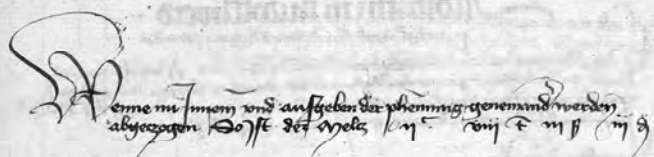 Wenne nu Innem und ausgeben der phennung gegeneinand werden
abgeczogen So Ist der Melcz ii c viii t iii ß iii d